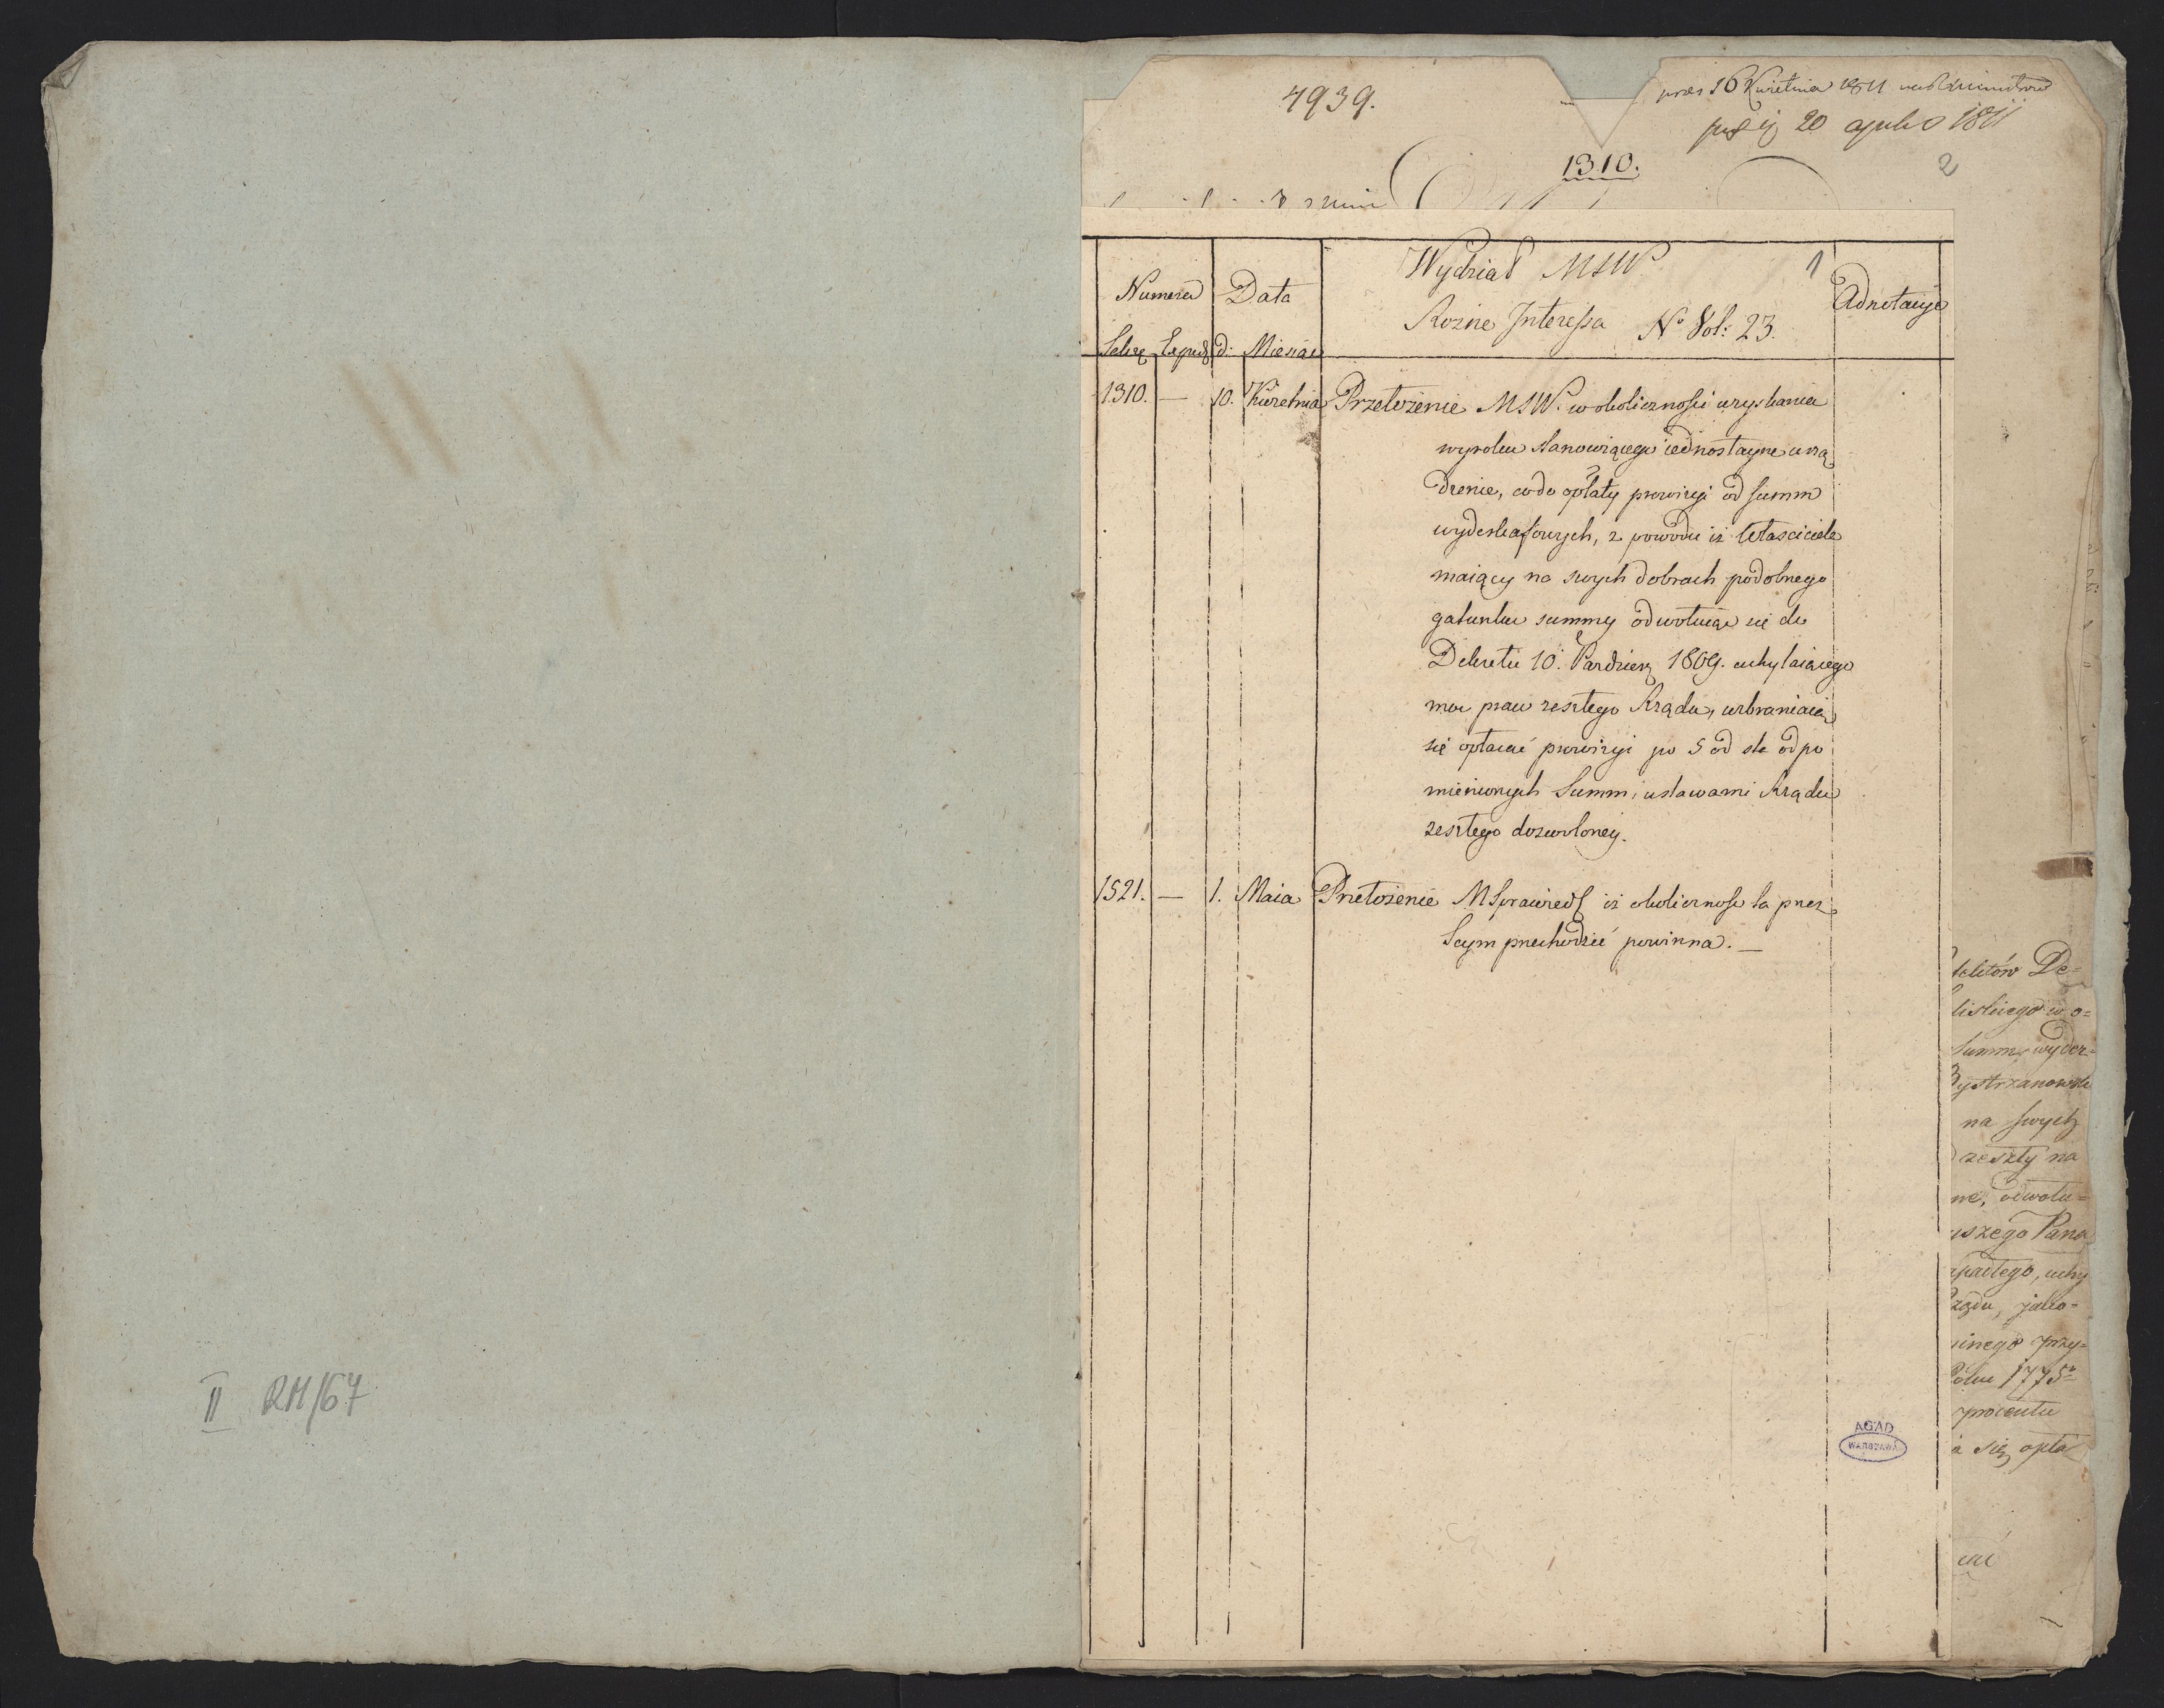 4939.
16 Kwietnia 1811
20 1811
1310.
2
Numera
Data
Wydział MSW
1
Adnotacye
Rozne Interessa No Vol: 23.
Sekre Exped d: Miesiąc
1310. — 10. Kwietnia Przełożenie MSW. w okoliczności uzyskania
wyroku stanowiącego iednostayne urzą
dzenie, co do opłaty prowizyi od summ
wyderkafowych, z powodu iż Własciciele
maiący na swych dobrach podobnego
gatunku summy odwołuiąc się do
Dekretu 10. Pazdzier 1809. uchylaiącego
moc praw zeszłego Rządu, wzbraniaią
się opłacać prowizyi po 5 od sta od po
mienionych Summ, ustawami Rządu
zeszłego dozwoloney.
1521. — 1. Maia Przełożenie MSprawiedl iż okoliczność ta przez
Seym przechodzić powinna. —
II RM/67
tekitów De=
liskiego w o=
Summ wyder=
Bystrzanowski
na swych
zeszły na
ne, odwołu=
yszego Pana
uchy
Rządu, jako=
inego przy=
Roku 1775.
procentu
a się opła
cać
AGAD
WARSZAWA